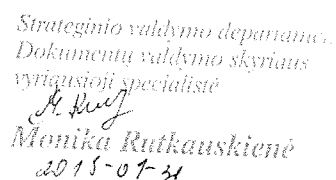 Strateginio valdymo departamen
Dokumentų valdymo skyriaus
vyriausioji specialistė
Monika Rutkauskienė
2015-01-